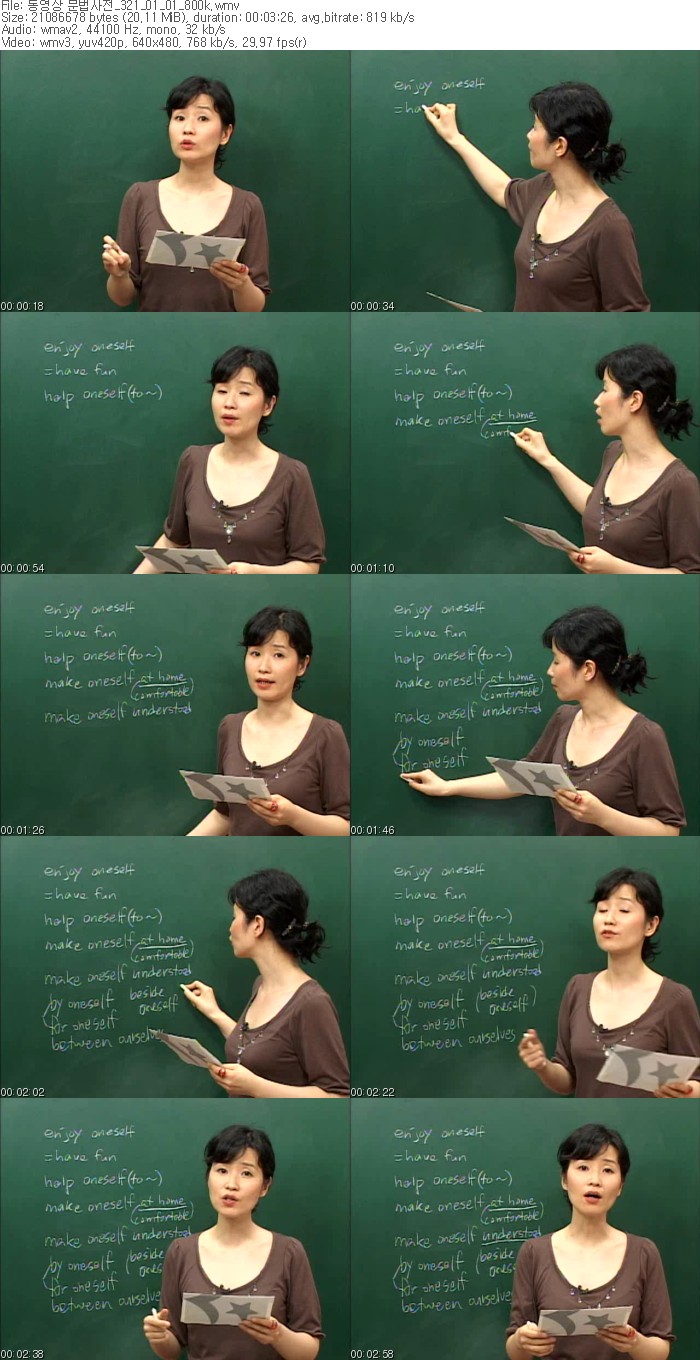 File: 동영상 문법사전_321_01_01_800k.wmv
Size: 21086678 bytes (20,11 MiB), duration: 00:03:26, avg.bitrate: 819 kb/s
Audio: wmav2, 44100 Hz, mono, 32 kb/s
Video: wmv3, yuv420p, 640x480, 768 kb/s, 29,97 fps(r)
00:00:18
enjoy oneself
=ha
00:00:34
enjoy oneself
=have fun
help oneself (to~)
00:00:54
enjoy oneself
=have fun
help oneself (to~)
make oneself at home
(comfo
00:01:10
enjoy oneself
=have fun
help oneself (to~)
make oneself at home
(comfortable)
make oneself understood
00:01:26
enjoy oneself
=have fun
help oneself (to~)
make oneself at home
(comfortable)
make oneself understood
by oneself
for oneself
00:01:46
enjoy oneself
=have fun
help oneself (to~)
make oneself at home
(comfortable)
make oneself understood
by oneself (beside
oneself
for oneself
between ourselves
00:02:02
enjoy oneself
=have fun
help oneself (to~)
make oneself at home
(comfortable)
make oneself understood
by oneself (beside
oneself)
for oneself
between ourselves
00:02:22
enjoy oneself
=have fun
help oneself (to~)
make oneself at home
(comfortable)
make oneself understood
by oneself (beside
ones
for oneself
between ourselves
00:02:38
enjoy oneself
=have fun
help oneself (to~)
make oneself at home
(comfortable)
make oneself understood
by oneself (beside
ones
for oneself
between ourselves
00:02:58